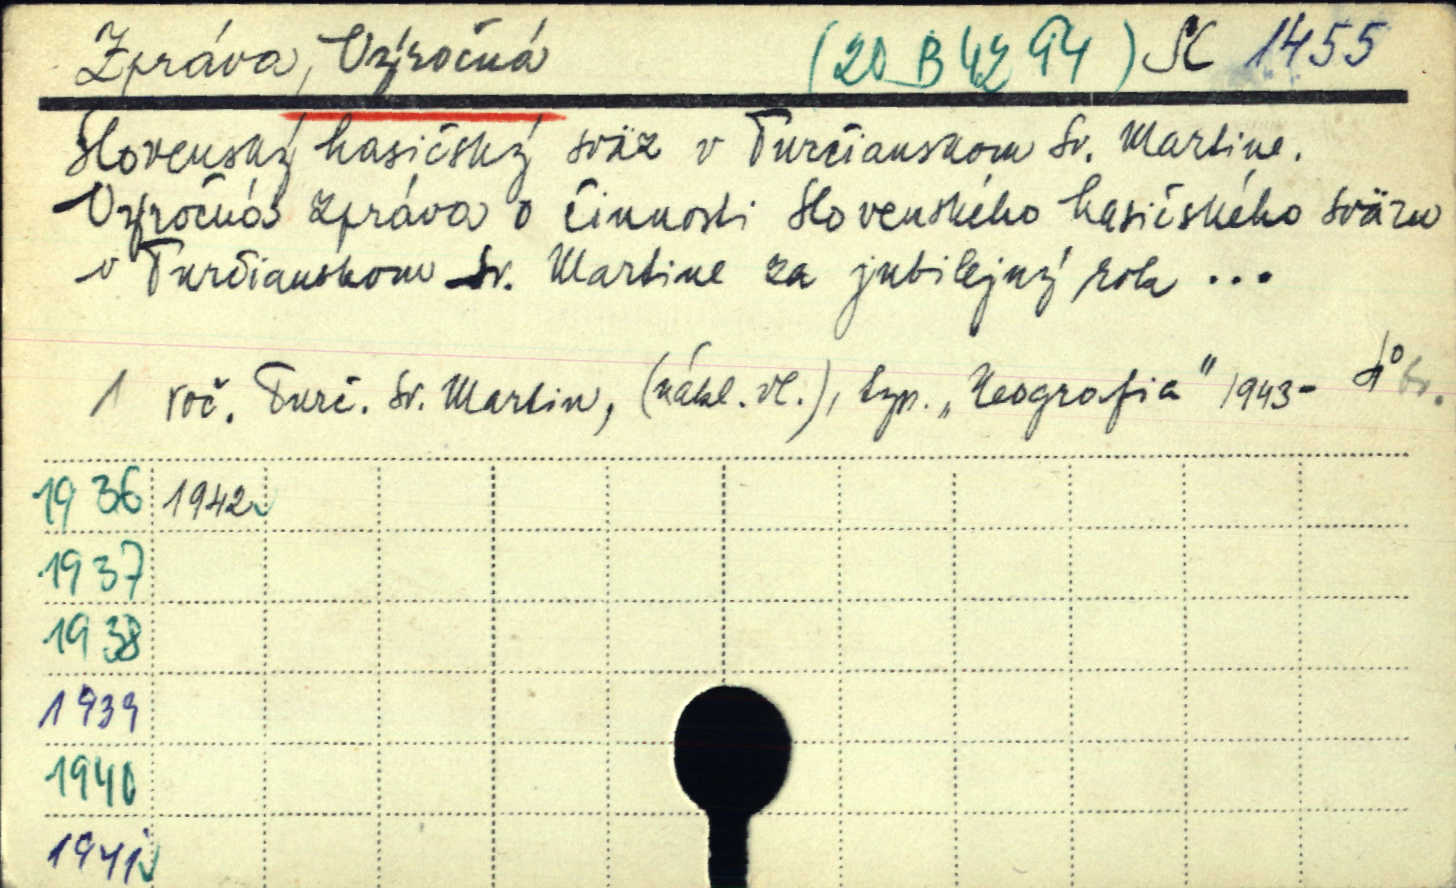 Zpráva, Výročná (20 B 4294) SK 1455
Slovenský hasičský sväz v Turčianskom Sv. Martine.
Výročná zpráva o činnosti Slovenského hasičského sväzu
v Turčianskom Sv. Martine za jubilejný rok ...
1 roč. Turč. Sv. Martin, (nákl. vl.), typ. „Neografia" 1943-
1936 1942
1937
1938
1939
1940
1941